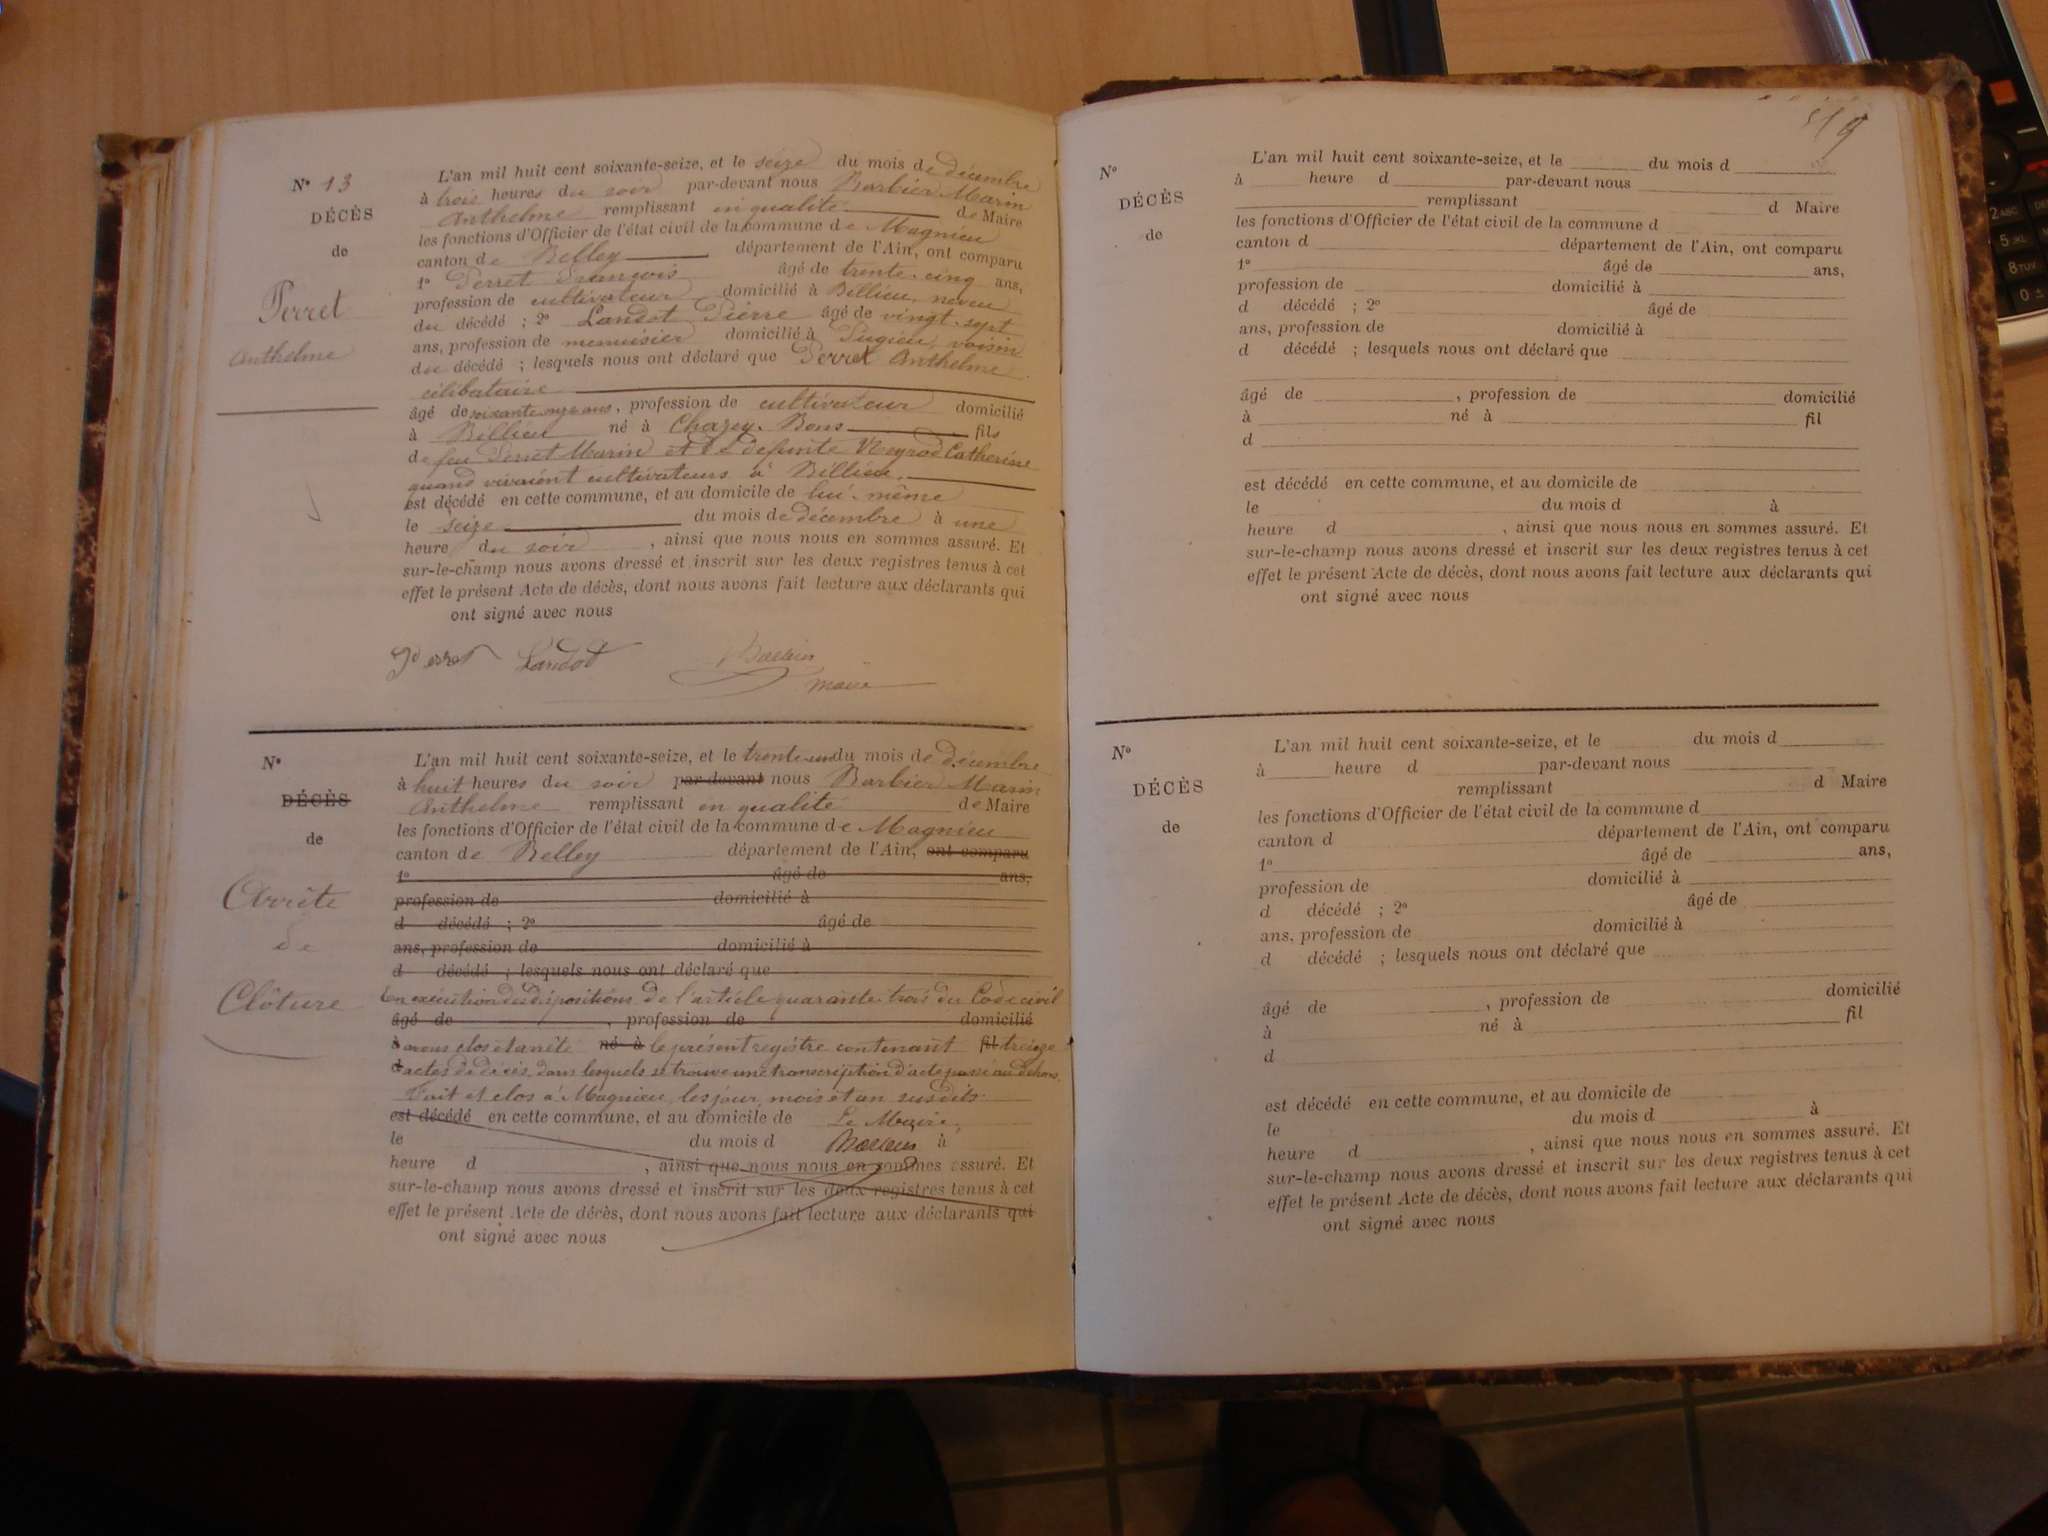 N° 13
DÉCÈS
de
Perret
Anthelme
L'an mil huit cent soixante-seize, et le seize du mois de décembre
à trois heures du soir par-devant nous Barbier Marin
Anthelme remplissant en qualité de Maire
les fonctions d'Officier de l'état civil de la commune de Magnieu
canton de Belley département de l'Ain, ont comparu
1° Perret François âgé de trente-cinq ans,
profession de cultivateur domicilié à Billieu, neveu
du décédé ; 2° Landot Pierre âgé de vingt-sept
ans, profession de menuisier domicilié à Pugieu, voisin
du décédé ; lesquels nous ont déclaré que Perret Anthelme
célibataire
âgé de soixante ans, profession de cultivateur domicilié
à Billieu né à Chazey-Bons fils
de feu Perret Marin et de défunte Neyrod Catherine
quand vivaient cultivateurs à Billieu.
est décédé en cette commune, et au domicile de lui-même
le seize du mois de décembre à une
heure du soir , ainsi que nous nous en sommes assuré. Et
sur-le-champ nous avons dressé et inscrit sur les deux registres tenus à cet
effet le présent Acte de décès, dont nous avons fait lecture aux déclarants qui
ont signé avec nous
Perret Landot Barbier
maire
N°
DÉCÈS
de
Arrêté
de
Clôture
L'an mil huit cent soixante-seize, et le trente-un du mois de décembre
à huit heures du soir par-devant nous Barbier Marin
Anthelme remplissant en qualité de Maire
les fonctions d'Officier de l'état civil de la commune de Magnieu
canton de Belley département de l'Ain, ont comparu
1° âgé de ans,
profession de domicilié à
d décédé ; 2° âgé de
ans, profession de domicilié à
d décédé ; lesquels nous ont déclaré que
En exécution des dispositions de l'article quarante-trois du Code civil
âgé de , profession de domicilié
à avons clos et arrêté né à le présent registre contenant fil treize
d actes de décès, dans lesquels se trouve une transcription d'acte passé au dehors.
Fait et clos à Magnieu, les jour, mois et an susdits.
est décédé en cette commune, et au domicile de Le Maire,
le du mois d Barbier à
heure d , ainsi que nous nous en sommes assuré. Et
sur-le-champ nous avons dressé et inscrit sur les deux registres tenus à cet
effet le présent Acte de décès, dont nous avons fait lecture aux déclarants qui
ont signé avec nous
519
N°
DÉCÈS
de
L'an mil huit cent soixante-seize, et le du mois d
à heure d par-devant nous
remplissant d Maire
les fonctions d'Officier de l'état civil de la commune d
canton d département de l'Ain, ont comparu
1° âgé de ans,
profession de domicilié à
d décédé ; 2° âgé de
ans, profession de domicilié à
d décédé ; lesquels nous ont déclaré que
âgé de , profession de domicilié
à né à fil
d
est décédé en cette commune, et au domicile de
le du mois d à
heure d , ainsi que nous nous en sommes assuré. Et
sur-le-champ nous avons dressé et inscrit sur les deux registres tenus à cet
effet le présent Acte de décès, dont nous avons fait lecture aux déclarants qui
ont signé avec nous
N°
DÉCÈS
de
L'an mil huit cent soixante-seize, et le du mois d
à heure d par-devant nous
remplissant d Maire
les fonctions d'Officier de l'état civil de la commune d
canton d département de l'Ain, ont comparu
1° âgé de ans,
profession de domicilié à
d décédé ; 2° âgé de
ans, profession de domicilié à
d décédé ; lesquels nous ont déclaré que
âgé de , profession de domicilié
à né à fil
d
est décédé en cette commune, et au domicile de
le du mois d à
heure d , ainsi que nous nous en sommes assuré. Et
sur-le-champ nous avons dressé et inscrit sur les deux registres tenus à cet
effet le présent Acte de décès, dont nous avons fait lecture aux déclarants qui
ont signé avec nous